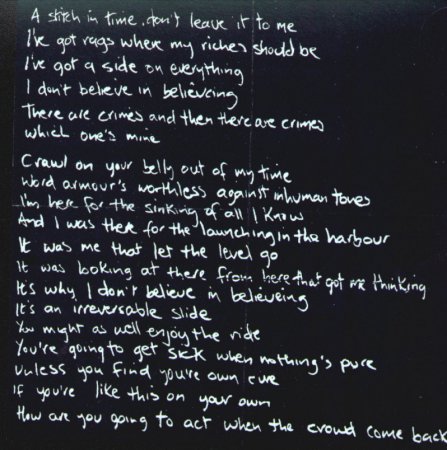 A stitch in time, don't leave it to me
I've got rags where my riches should be
I've got a side on everything
I don't believe in believeing
There are crimes and then there are crimes
which one's mine
Crawl on your belly out of my time
Word armour's worthless against inhuman tones
I'm here for the sinking of all I know
And I was there for the launching in the harbour
It was me that let the level go
It was looking at there from here that got me thinking
It's why, I don't believe in believeing
It's an irreversable slide
You might as well enjoy the ride
You're going to get sick when nothing's pure
Unless you find you're own cure
If you're like this on your own
How are you going to act when the crowd come back